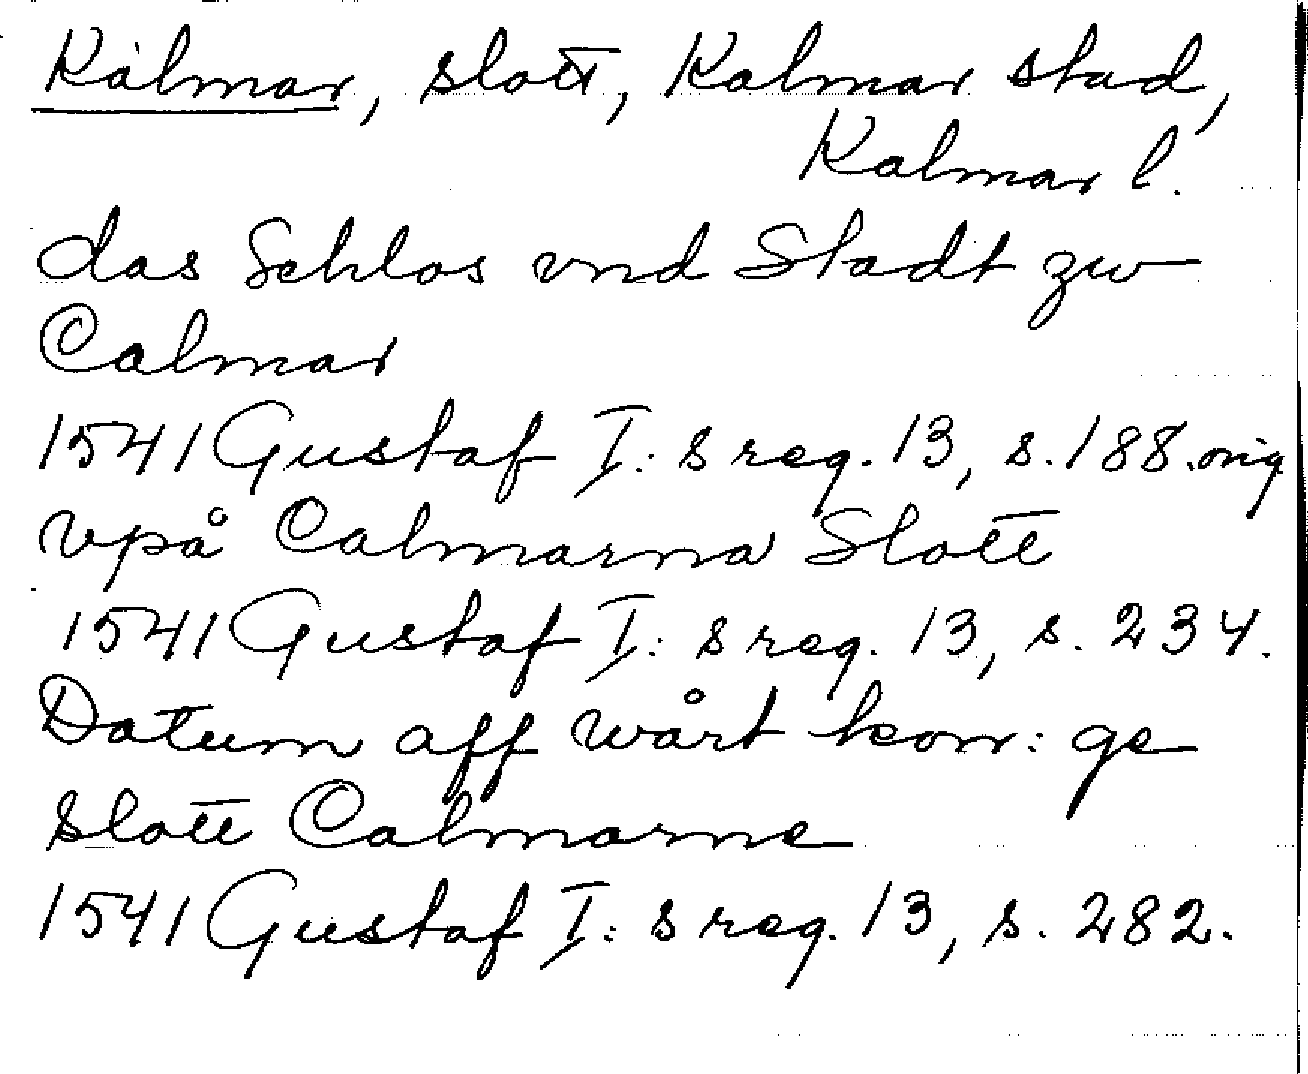 Kalmar, slott, Kalmar stad,
Kalmar l.
das Schlos vnd Stadt zw
Calmar
1541 Gustaf I:s reg. 13, s. 188. orig
vpå Calmarna Slott
1541 Gustaf I:s reg. 13, s. 234.
Datum aff wårt kon: ge
slott Calmarne
1541 Gustaf I:s reg. 13, s. 282.